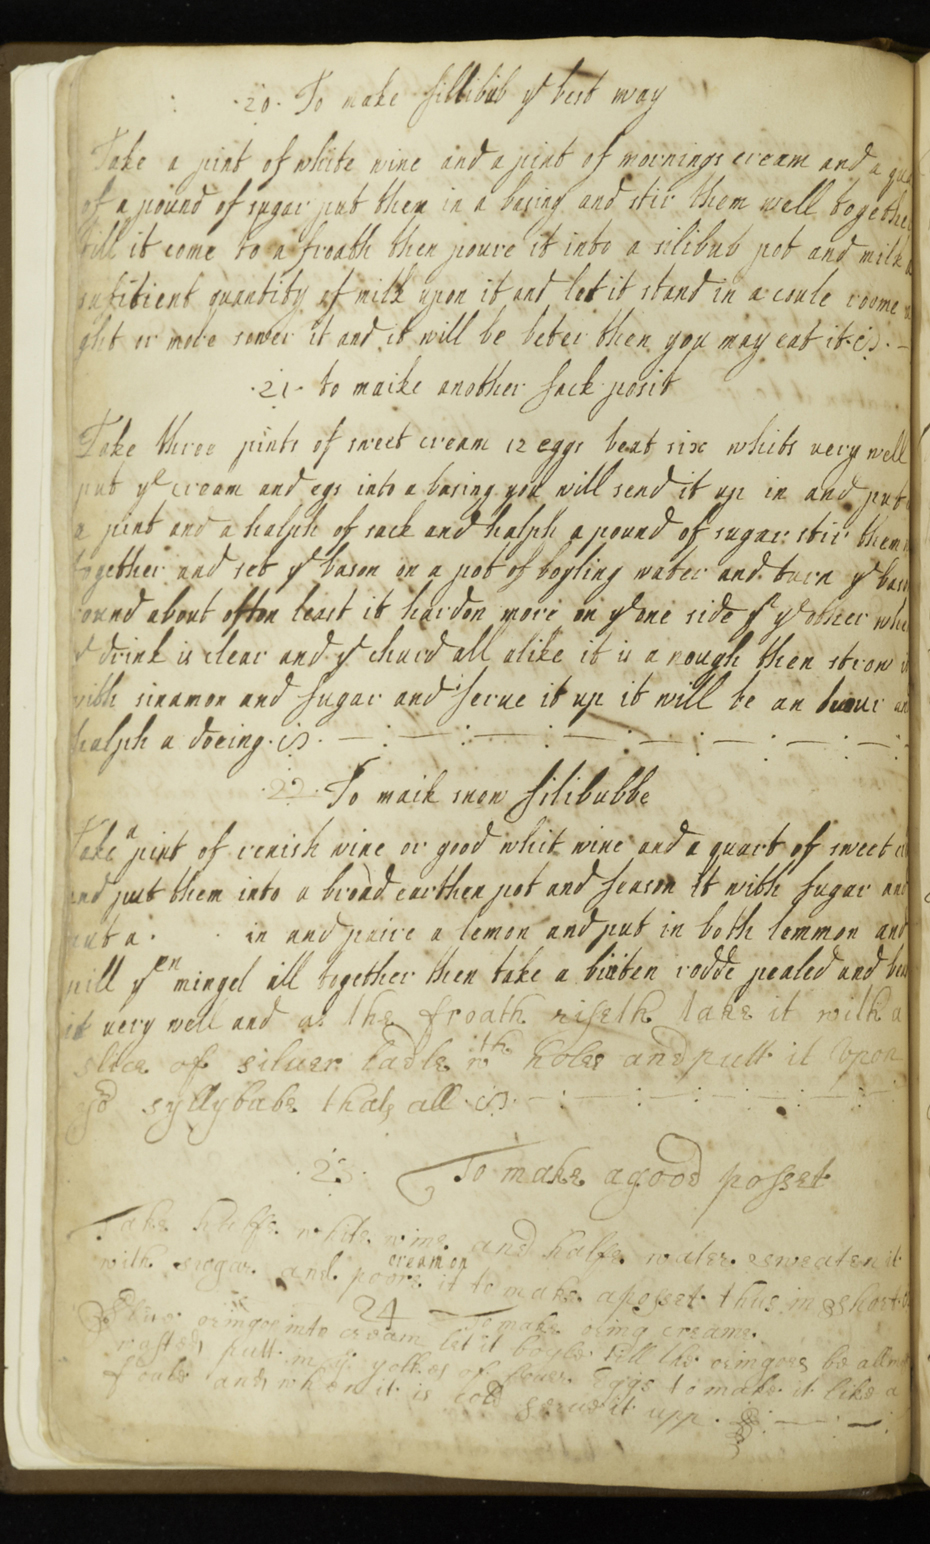 20. To make sillibub yᵉ best way
Take a pint of white wine and a pint of mornings cream and a
of a pound of sugar put them in a basing and stir them well together
till it come to a froath then poure it into a silibub pot and milk a
sufitient quantity of milk upon it and let it stand in a coule roome
ght or more sower it and it will be beter then you may eat it
.21. to maike another sack posit
Take three pints of sweet cream 12 eggs beat six whits very well
put yᵉ cream and egs into a basing you will send it up in and put
a pint and a halph of sack and halph a pound of sugar stir them
together and set yᵉ bason on a pot of boyling water and turn yᵉ bason
round about often least it harden more on yᵉ one side yⁿ yᵉ other
yᵉ drink is clear and yᵉ churd all alike it is a nough then strow it
with sinamon and sugar and serue it up it will be an houer and
halph a doeing.
.22. To maik snow silibubbe
Take a pint of renish wine or good whit wine and a quart of sweet
and put them into a broad earthen pot and season it with sugar and
put a . . in and paire a lemon and put in both lemmon and
pill yᵉⁿ mingel all together then take a birtten rodde pealed and
it very well and as the froath riseth take it with a
slice of siluer Ladle wᵗʰ holes and putt it Vpon
syllybabe thats all
.23. To make a good posset
Take halfe white wine and halfe water sweaten it
with sugar and poore creame on it to make aposset thus in short
24 To make oring creame.
oringoe into cream let it boyle till the oringoes be allmost
putt in yᵉ yolkes of fouer Eggs to make it like a
and when it is cold serue it upp.